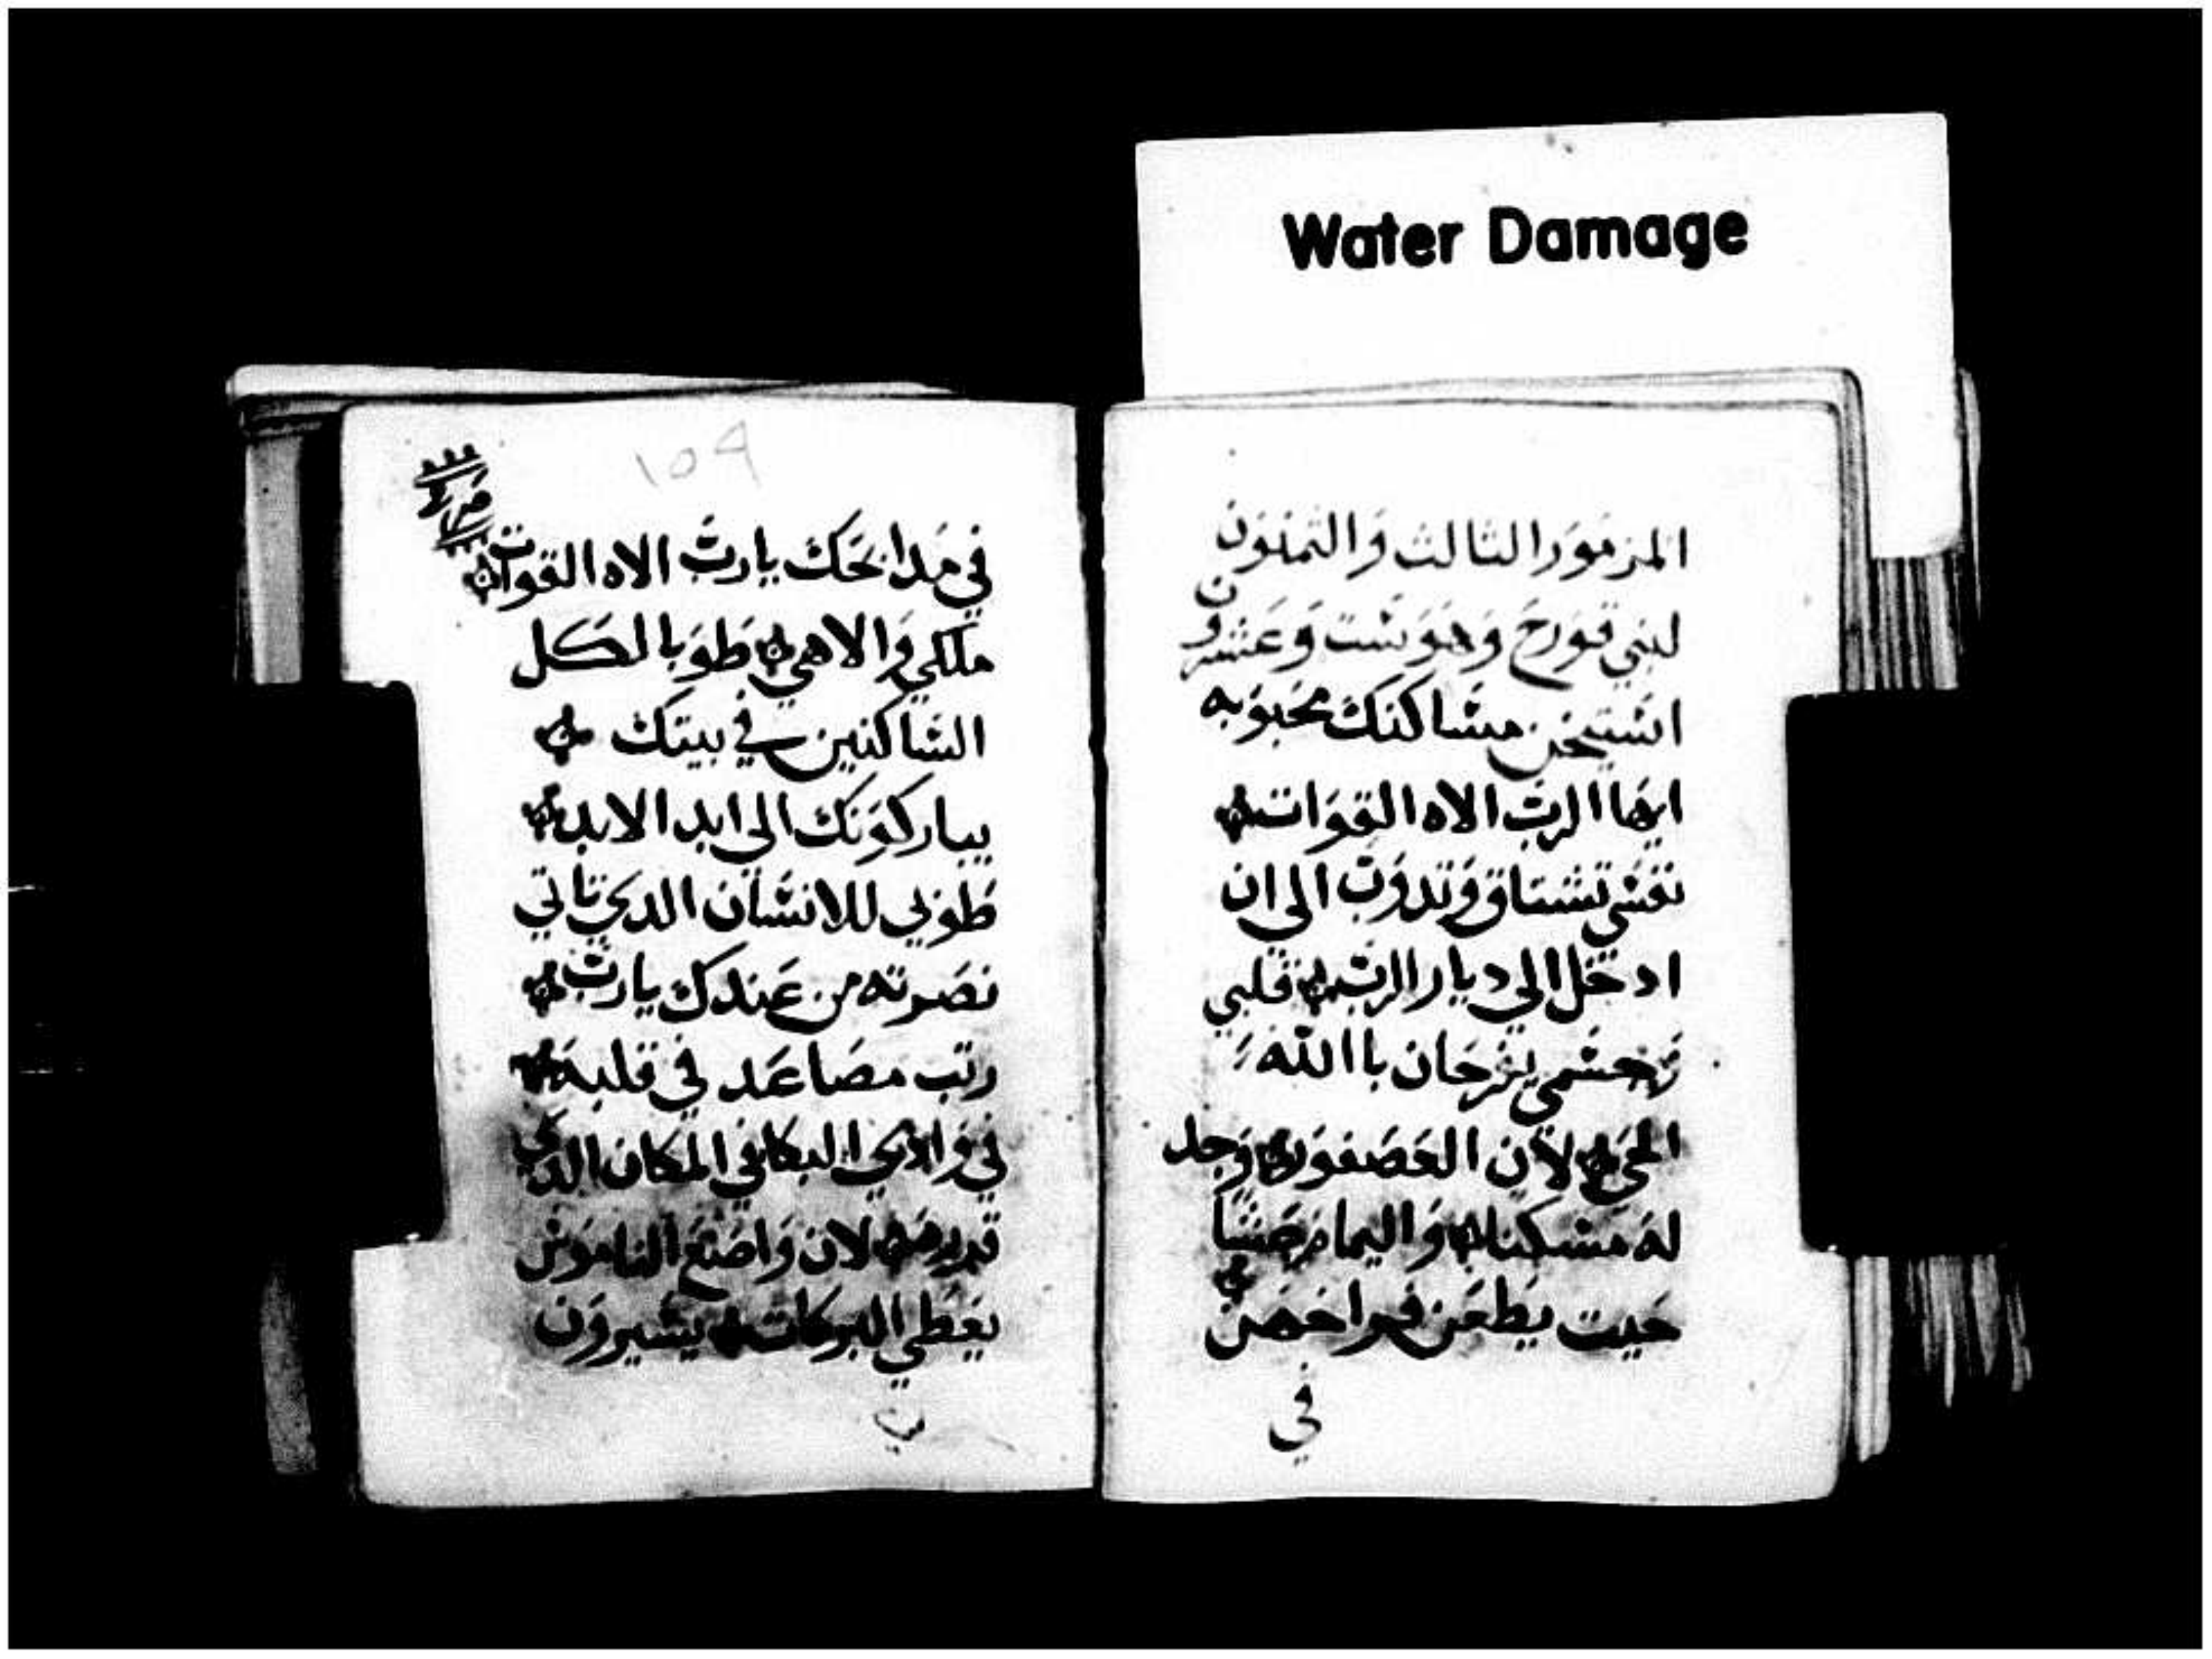 Water Damage
المزمور الثالث والثمنون
لبني قورح وهو ست وعشرون
استيخن مساكنك محبوبه
ايها الرب الاه القوات
نفسي تشتاق وتدوب الى ان
ادخل الى ديار الرب قلبي
وجسمي يفرحان باالله
الحي لان العصفور وجد
له مسكنا واليمام عشا
حيت يطعن فراخهن
في
١٥٩
في مدابحك يارب الاه القوات
ملكي والاهي طوبا لكل
الساكنين في بيتك
يباركونك الى ابد الابد
طوبي للانسان الدي تاتي
نصرته من عندك يارب
رتب مصاعد في قلبه
في وادي البكا في المكان الدي
قرره لان واضع الناموس
يعطي البركات يسيرون